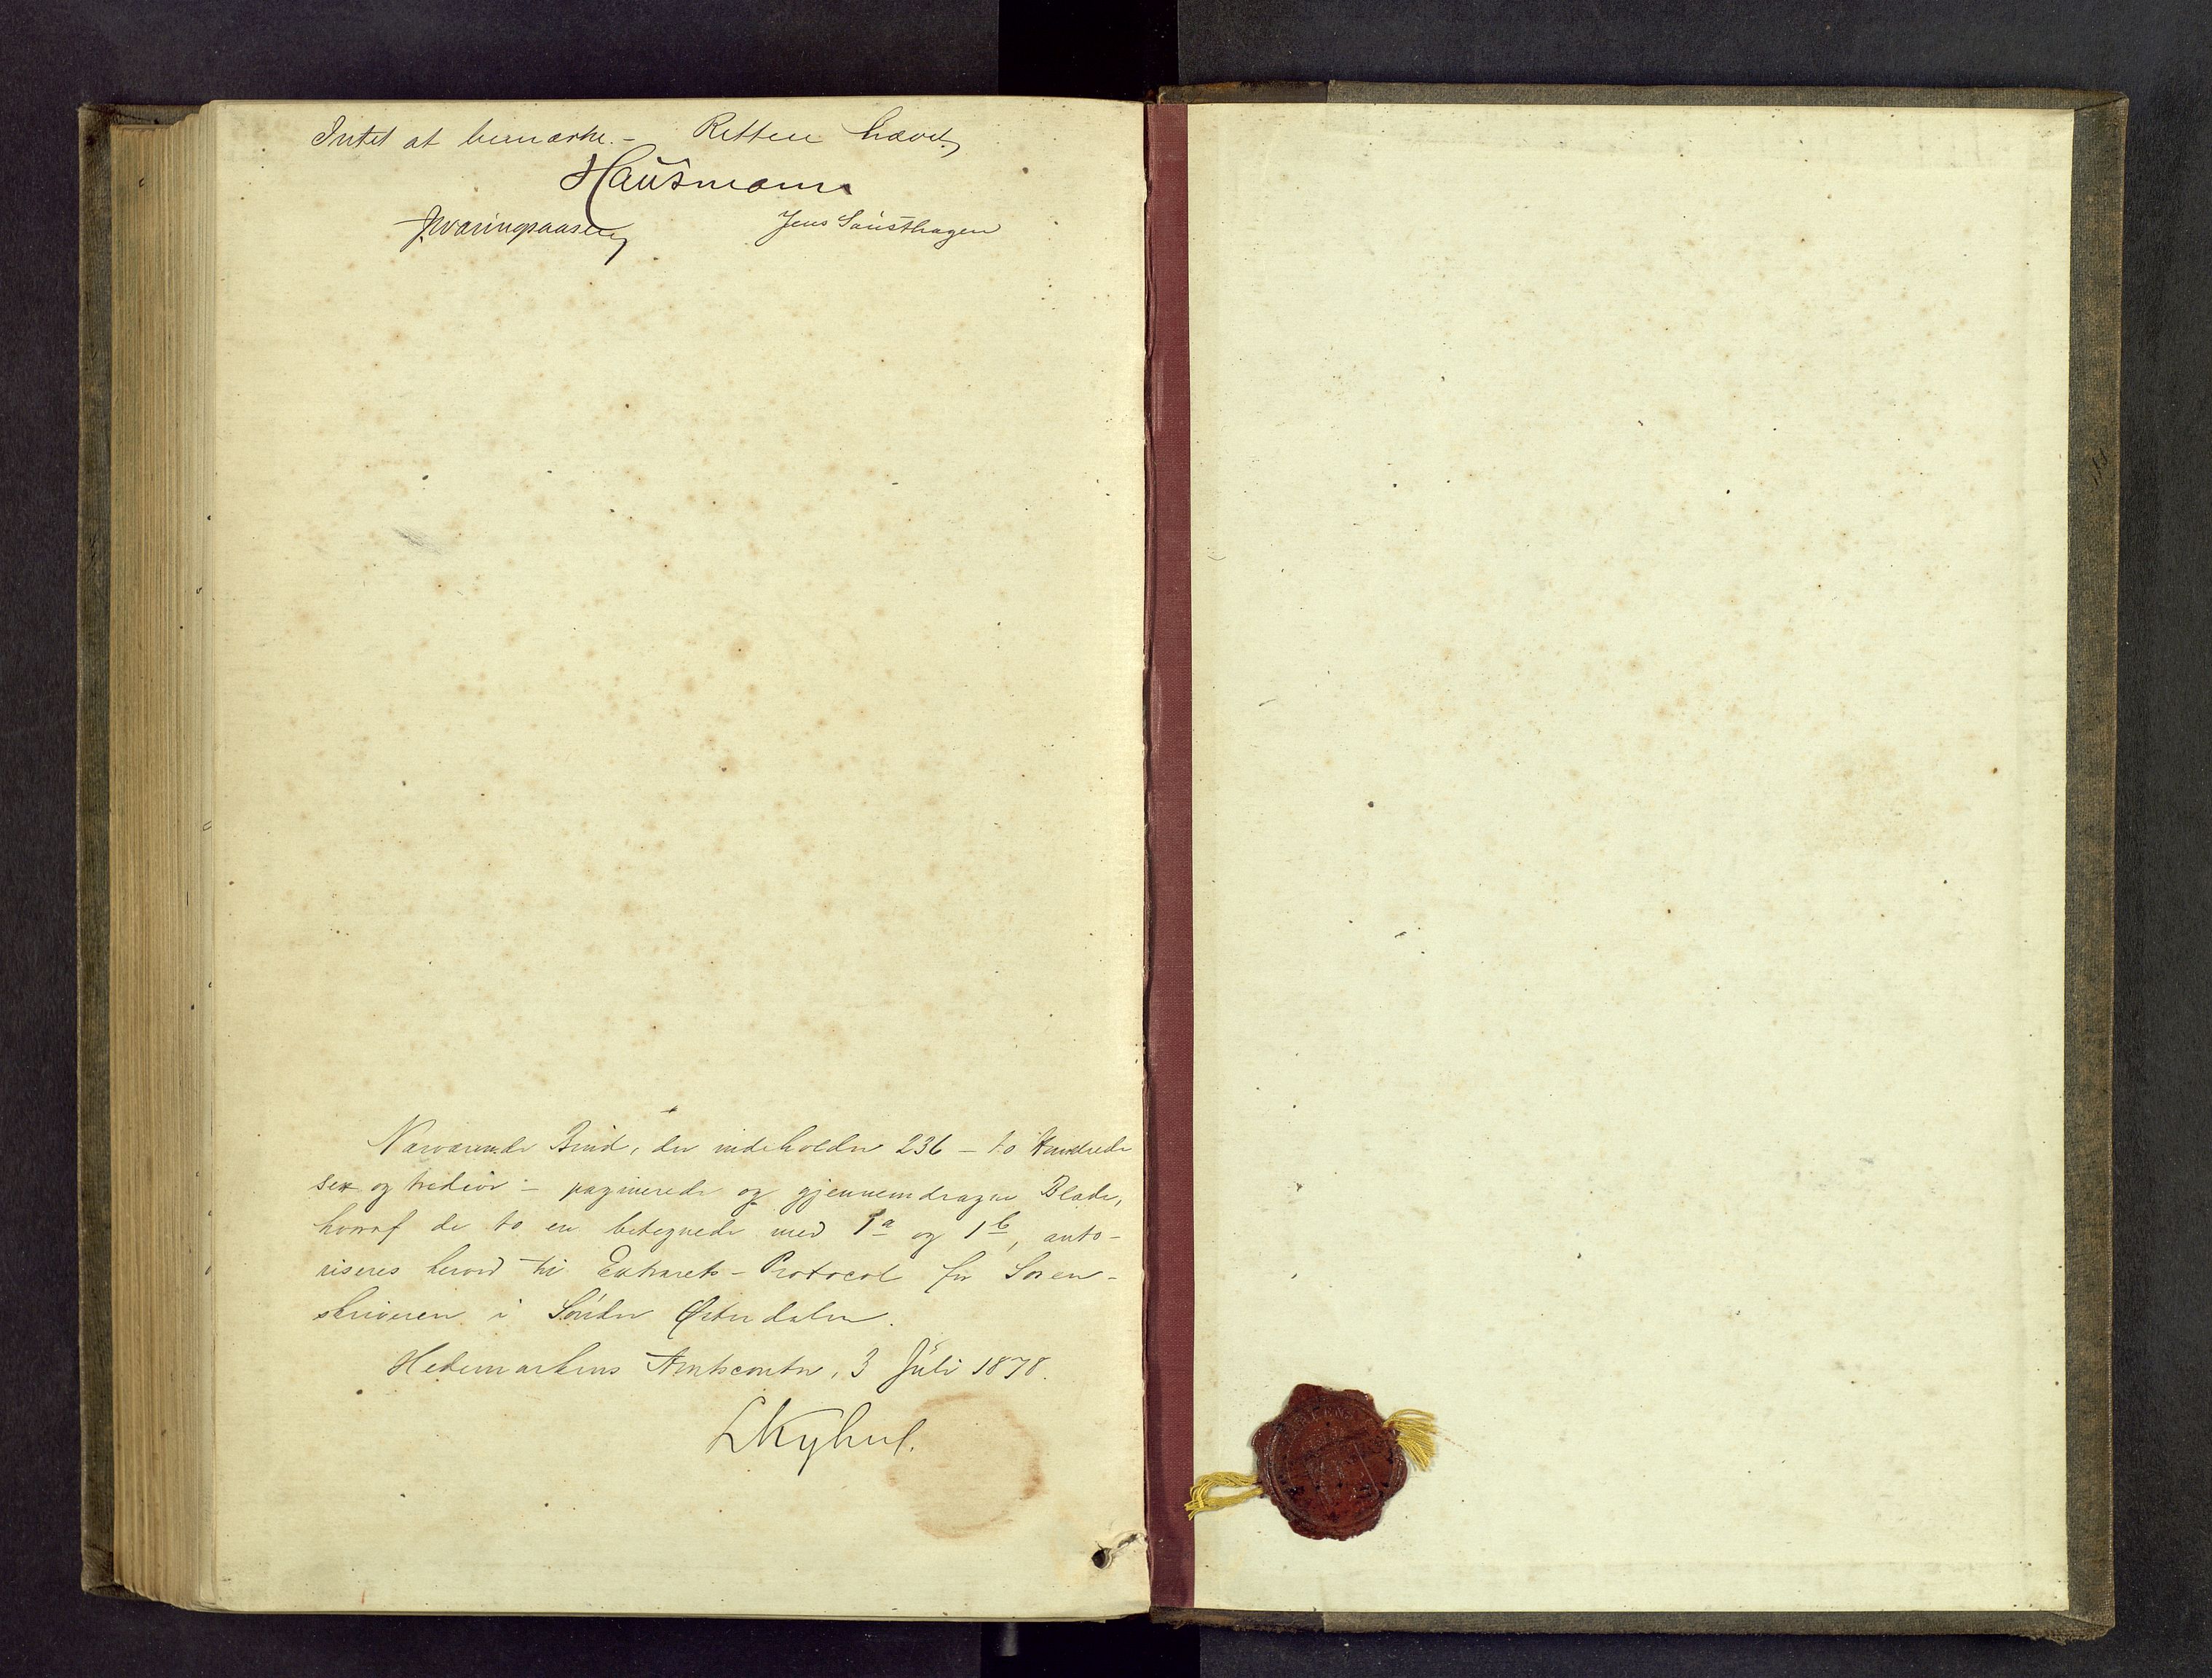 Intet at bemærke. - Retten hævet,
Hausmann
Jens Sausthagen
Nærværende Bind, der indeholder 236 - to Hundrede
sex og tredive - paginerede og gjennemdragne Blade,
hvoraf de to ere betegnede med 1a og 1b, auto-
riseres herved til Extrarets-Protocol for Soren-
skriveren i Søndre Østerdalen.
Hedemarkens Amtscontor, 3 Juli 1878.